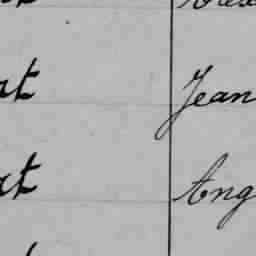 at Jean
at Ang